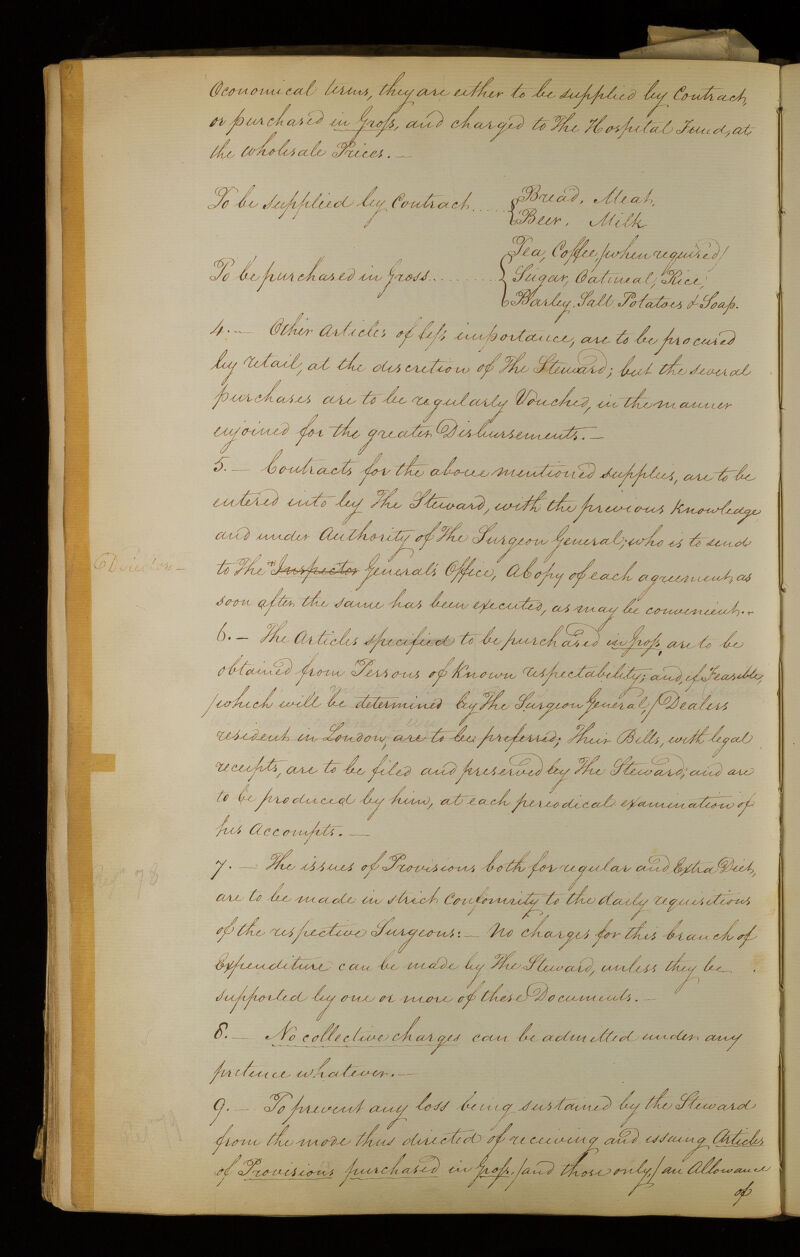 Oeconomical terms, they are either to be supplied by Contract,
or purchased in Gross, and charged to The Hospital Fund, at
the wholesale Prices. —
To be supplied by Contract .... { Bread, Meat,
Beer, Milk
Tea, Coffee, /when required/
To be purchased in Gross ......... { Sugar, Oatmeal, Rice,
Barley, Salt Potatoes & Soap.
4. — Other Articles of less importance, are to be procured
by retail, at the discretion of The Steward; but the several
purchases are to be regularly Vouched, in the manner
enjoined for the greater Disbursements. —
5. — Contracts for the above mentioned supplies, are to be
entered into by The Steward, with the previous Knowledge
and under Authority of The Surgeon General, who is to send
Director —
to The Inspector General's Office, A Copy of each agreement, as
soon after the same has been executed, as may be convenient. —
6. — The Articles specified to be purchased in Gross, are to be
obtained from Persons of Known respectability; and, if Feasible,
/which will be determined by The Surgeon General,/ Dealers
resident in London, are to be preferred; Their Bills, with legal
receipts, are to be filed and preserved by The Steward; and are
to be produced by him, at each periodical examination of
his Accompts. —
7. — The issues of Provisions both for regular and Extra Diet,
78
are to be made in strict Conformity to the daily requisitions
of the respective Surgeons: — No charges for this branch of
Expenditure can be made by The Steward, unless they be
supported by one or more of these Documents. —
8. — No collective charges can be admitted under any
pretence whatever. —
9. — To prevent any loss being sustained by the Steward
79
from the mode thus directed of receiving and issuing Articles
of Provisions purchased in Gross, /and those only,/ an Allowance
of